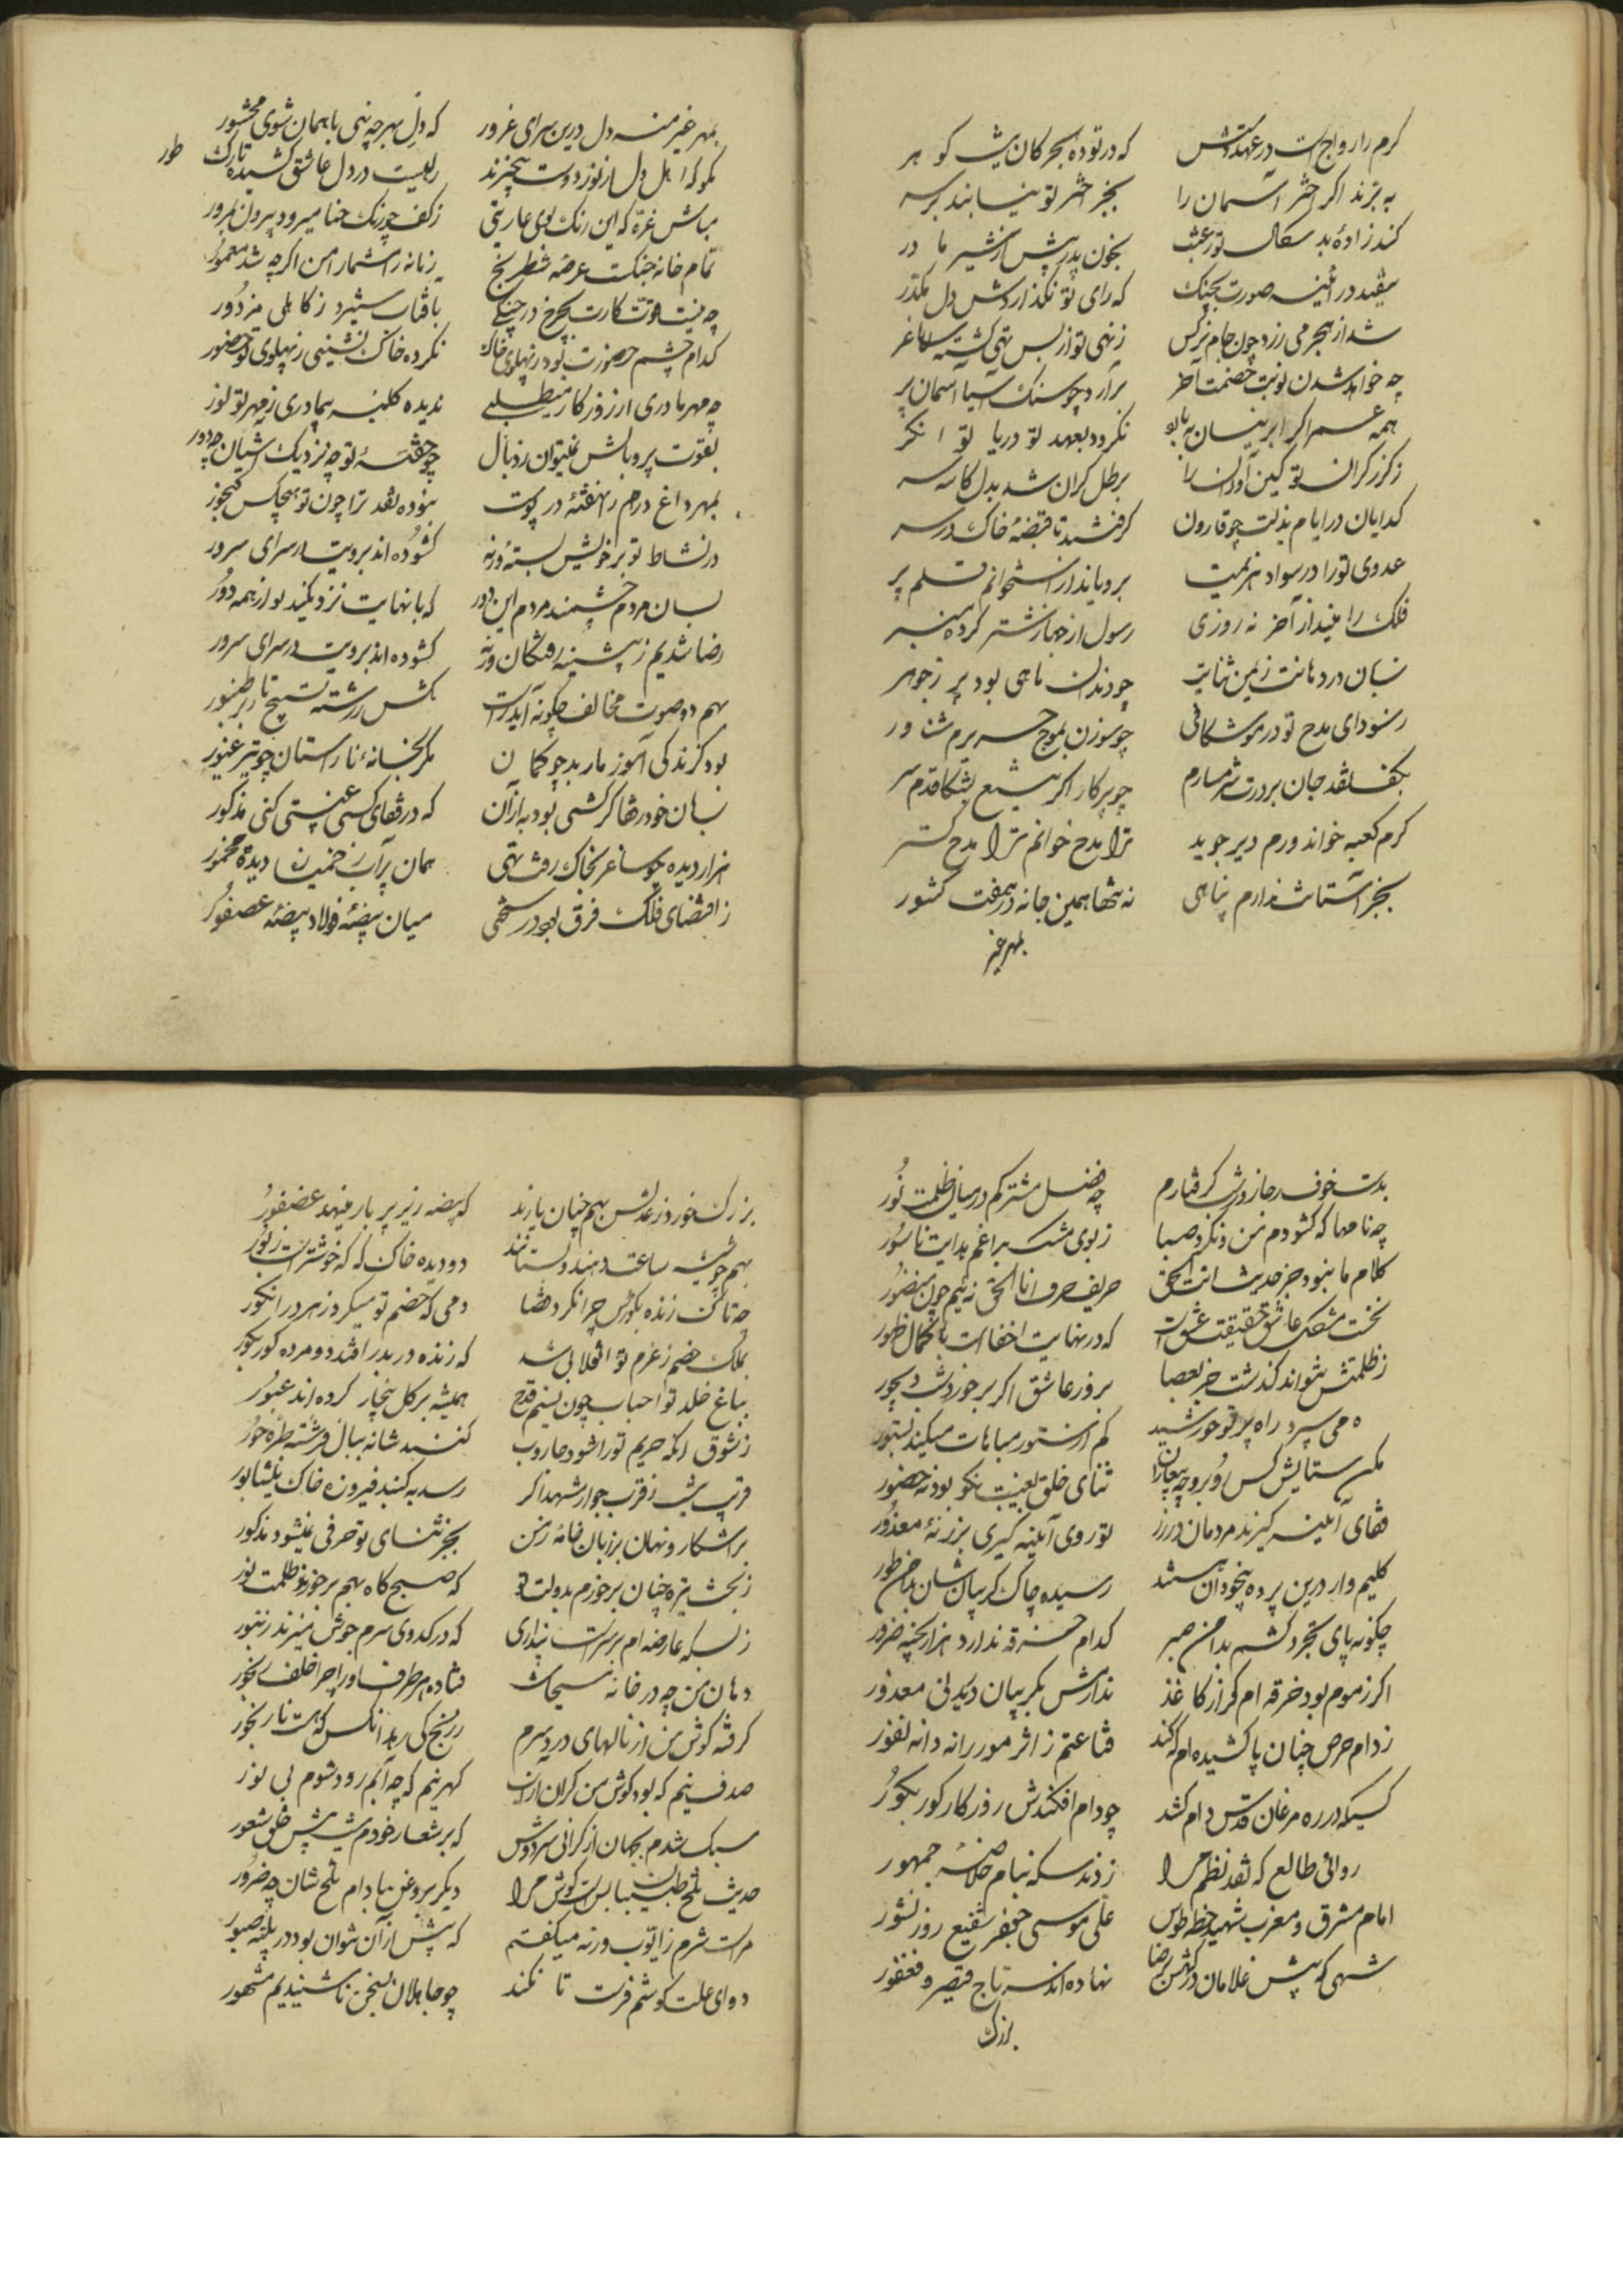 کرم را رواج است در عهد دستش که در توده بحر کان شد کوهر
به برند اگر اختر آسمان را بجز اختر تو نیابند بر سر
کند زاده بد سکال تو رغبت بخون پدر پیش از شیر مادر
نیفتد در آئینه صورت بجنک که رای تو نگذاردش دل مکدر
شد از هجر می زرد چون جام نرکس ز نهی تو از بس تهی کشته ساغر
چه خواهد شدن نوبت خصمت آخر برآرد چو سنک آسیا آسمان پر
همه عمر اگر ابر نیسان ببارد نگردد بعهد تو دریا توانگر
ز گرز گران تو کین آوران را برطل گران شد بدل کاسه سر
گدایان در ایام بذلت چو قارون گرفتند تا قبضه خاک در سر
عدوی تو را در سواد هزیمت برویاند از استخوانم قلم پر
فلک را میندازد آخر نه روزی رسول از جهاز شتر کرده منبر
زبان در دهانت ز یمن ثنایت چو دندان ماهی بود پر ز جوهر
ز سودای مدح تو در موشکافی چو سوزن بموج حریرم شناور
بکف نقد جان بر درت شرمسارم چو پرکار اگر تیغ بشکافدم سر
کرم کعبه خواند ورم دیر جوید ترا مدح خوانم ترا مدح گستر
بجز آستانت ندارم پناهی نه تنها همین جا نه در هفت کشور
بمهر غیر
بمهر غیر منه دل درین سرای غرور که دل بهر چه نهی با همان شوی محشور
مگو که اهل دل از نور دوست بیخبرند ربیست در دل عاشق کشیده تارک طور
مباش غره که این رنک و بوی عاریتی ز کف چو رنک حنا میرود برون بمرور
تمام خانه جنکست عرصه شطرنج زمانه را مشمار امن اگر چه شد معمور
چه نیست قوت کارت بچرخ در جنگی بآفتاب ستیزد ز کاهلی مزدور
کدام چشم حضورت بود ز پهلوی خاک نکرده خاک نشینی ز پهلوی تو حضور
چه مهر مادری از روزگار میطلبی ندیده کلبه بیمادری ز مهر تو نور
بقوت پر و بالش نمیتوان زد بال چو جفته تو چه نزدیک آشیان چه دور
بمهر داغ درم را نهفته در پوست نبوده نقد ترا چون تو هیچکس گنجور
در نشاط تو بر خویش بسته ورنه کشوده اند برویت در سرای سرور
بسان مردم چشمند مردم این دور که با نهایت نزدیکیند از همه دور
رضا شدیم ز پیشینه رفتگان ورنه کشوده اند برویت در سرای سرور
بهم دو صوت مخالف چگونه آید راست مکش ز رشته تسبیح تار بر طنبور
بود گزند کی آموز مار بد چو کمان مگر بخانه ناراستان چو تیر عبور
بسان خود رضا گر کشی بود به از آن که در قفای کسی عیبتی کنی مذکور
هزار دیده چو ساغر بخاک رفت تهی همان پر آب ز خمیست دیده مخمور
ز اقتضای فلک فرق بود در سختی میان بیضه فولاد بیضه عصفور
بدست خوف رجا زورت گرفتارم چه فضل مشترکم در میان ظلمت نور
چه نامها که کشودم من و نکرد صبا ز بوی مشک براغم هدایت ناسور
کلام ما نبود جز حدیث انت الحق حریف حرف انا الحق نه ایم چون منصور
نخست مشعل عاشق حقیقت عشقست که در نهایت اخفاست با کمال ظهور
ز ظلمتش نتواند گذشت جز بعصا بروز عاشق اگر برخورد شب دیجور
نمی سپرد راه پرتو خورشید کم از ستور مباهات میکند بستور
مکن ستایش کس روبرو چه بیعاران ثنای خلق بغیبت نکو بود نه حضور
قفای آینه گیرند مردمان در رزز تو روی آینه گیری بزر نه معذور
کلیم وار درین پرده بیخودان هستند رسیده چاک گریبان شان بدامن طور
چگونه پای تجرد کشم بدامن صبر کدام خرقه ندارد هزار بخیه ضرور
اگر ز موم بود خرقه ام گر از کاغذ ندارمش بگریبان دیدنی معذور
ز دام حرص چنان پا کشیده ام که کند قناعتم ز اثر مور رانه دانه نفور
کسیکه در ره مرغان قدس دام کشد چو دام افکندش روزگار کور بکور
روائی طالع که نقد نظم مرا زدند سکه بنام خلاصه جمهور
امام مشرق و مغرب شهید خطه طوس علی موسی جعفر شفیع روز نشور
شهی که پیش غلامان درگهش ز رضا نهاده اند سر تاج قیصر و فغفور
بزرک
بزرک خورد ز عدلش بهم چنان یارند که بیضه زیر پر باز مینهد عصفور
بهم چو شیشه ساعت دهند و بستانند دو دیده خاک که که خوشتر است ز نور
چه تاک زنده بگورش چرا نکرد قضا دمی که خصم تو میکرد زهر در انگور
بملک خصم ز عزم تو انقلابی شد که زنده در بدر افتد و مرده کور بکور
بباغ خلد تو احباب چون نسیم قدح همیشه بر گل بیخار کرده اند عبور
ز شوق آنکه حریم تو را شود جاروب کنند شانه ببال فرشته طره حور
قریب شد ز قرب جوار شهد اگر رسد به گنبد فیروزه خاک نیشابور
بر آشکار و نهان بر زبان خامه من بجز ثنای تو حرفی نمیشود مذکور
ز بخت تیره چنان برخورم بدولت تو که صبح گاه بهم برخورند ظلمت نور
ز بسکه عارضه ام بر سرست پنداری که در کدوی سرم جوش میزند زنبور
دهان من چه در خانه مسیحاست فتاده هر طرف او را چرا خلف رنجور
گرفته گوش من از نالهای درد سرم ز رنج کی رهد آنکس که هست نا رنجور
صدف نیم که بود گوش من گران از آب گهر نیم که چه آبم رود شوم بی نور
سبک شدم بجهان از گرانی سر و گوش که بر شعار خودم نیست پیش خلق شعور
حدیث تلخ طبیبان بس است گوش مرا دیگر بروغن بادام تلخ شان چه ضرور
مراست شرم ز ایوب ورنه میگفتم که پیش از آن نتوان بود در بلیه صبور
دوای علت گوشم فرست تا نکند چو جاهلان بسخن ناشنیدیم مشهور